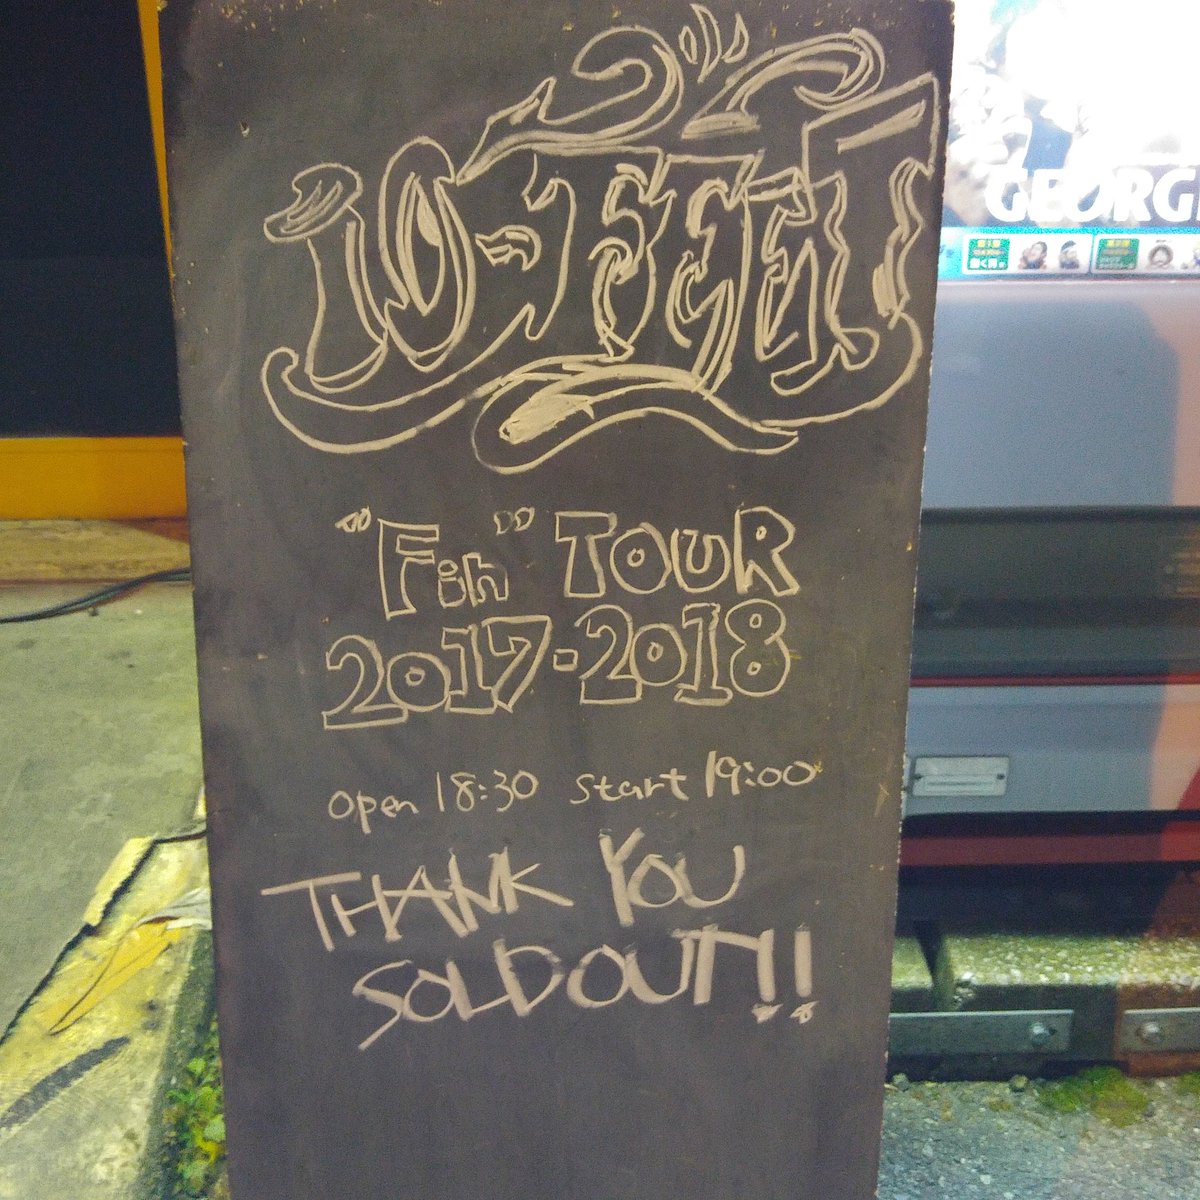 10-FEET
"Fin" TOUR
2017-2018
open 18:30 start 19:00
THANK YOU
SOLD OUT!!
GEORG